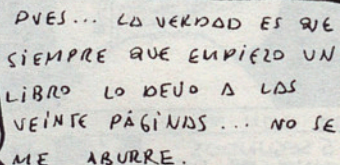 PUES... LA VERDAD ES QUE
SIEMPRE QUE EMPIEZO UN
LIBRO LO DEJO A LAS
VEINTE PÁGINAS... NO SE
ME ABURRE.